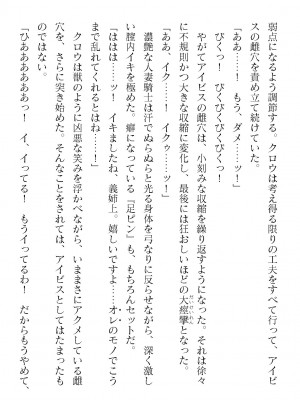 弱点になるよう調節する。クロウは考え得る限りの工夫をすべて行って、アイビ
スの雌穴を責め立て続けていた。
「ああ……ッ！　もう、ダメ……ッ！」
びくっ！　びくびくびくっ！
「ああ、イク……ッ！　イクゥ……ッ！」
やがてアイビスの雌穴は、小刻みな収縮を繰り返すようになった。それは徐々
に不規則かつ大きな収縮に変化し、最後には狂おしいほどの大痙攣となった。
濃艶な人妻騎士は汗でぬらぬらと光る身体を弓なりに反らせながら、深く激し
い膣内イキを極めた。癖になっている『足ピン』も、もちろんセットだ。
「ははは……ッ！　イキましたね、義姉上。嬉しいですよ……オレのモノでこう
まで乱れてくれるとはね……！」
クロウは獣のように凶悪な笑みを浮かべながら、いままさにアクメしている雌
穴を、さらに突き始めた。そんなことをされては、アイビスとしてはたまったも
のではない。
「ひああああああっ！　イ、イってる！　もうイってるわ！　だからもうやめて、